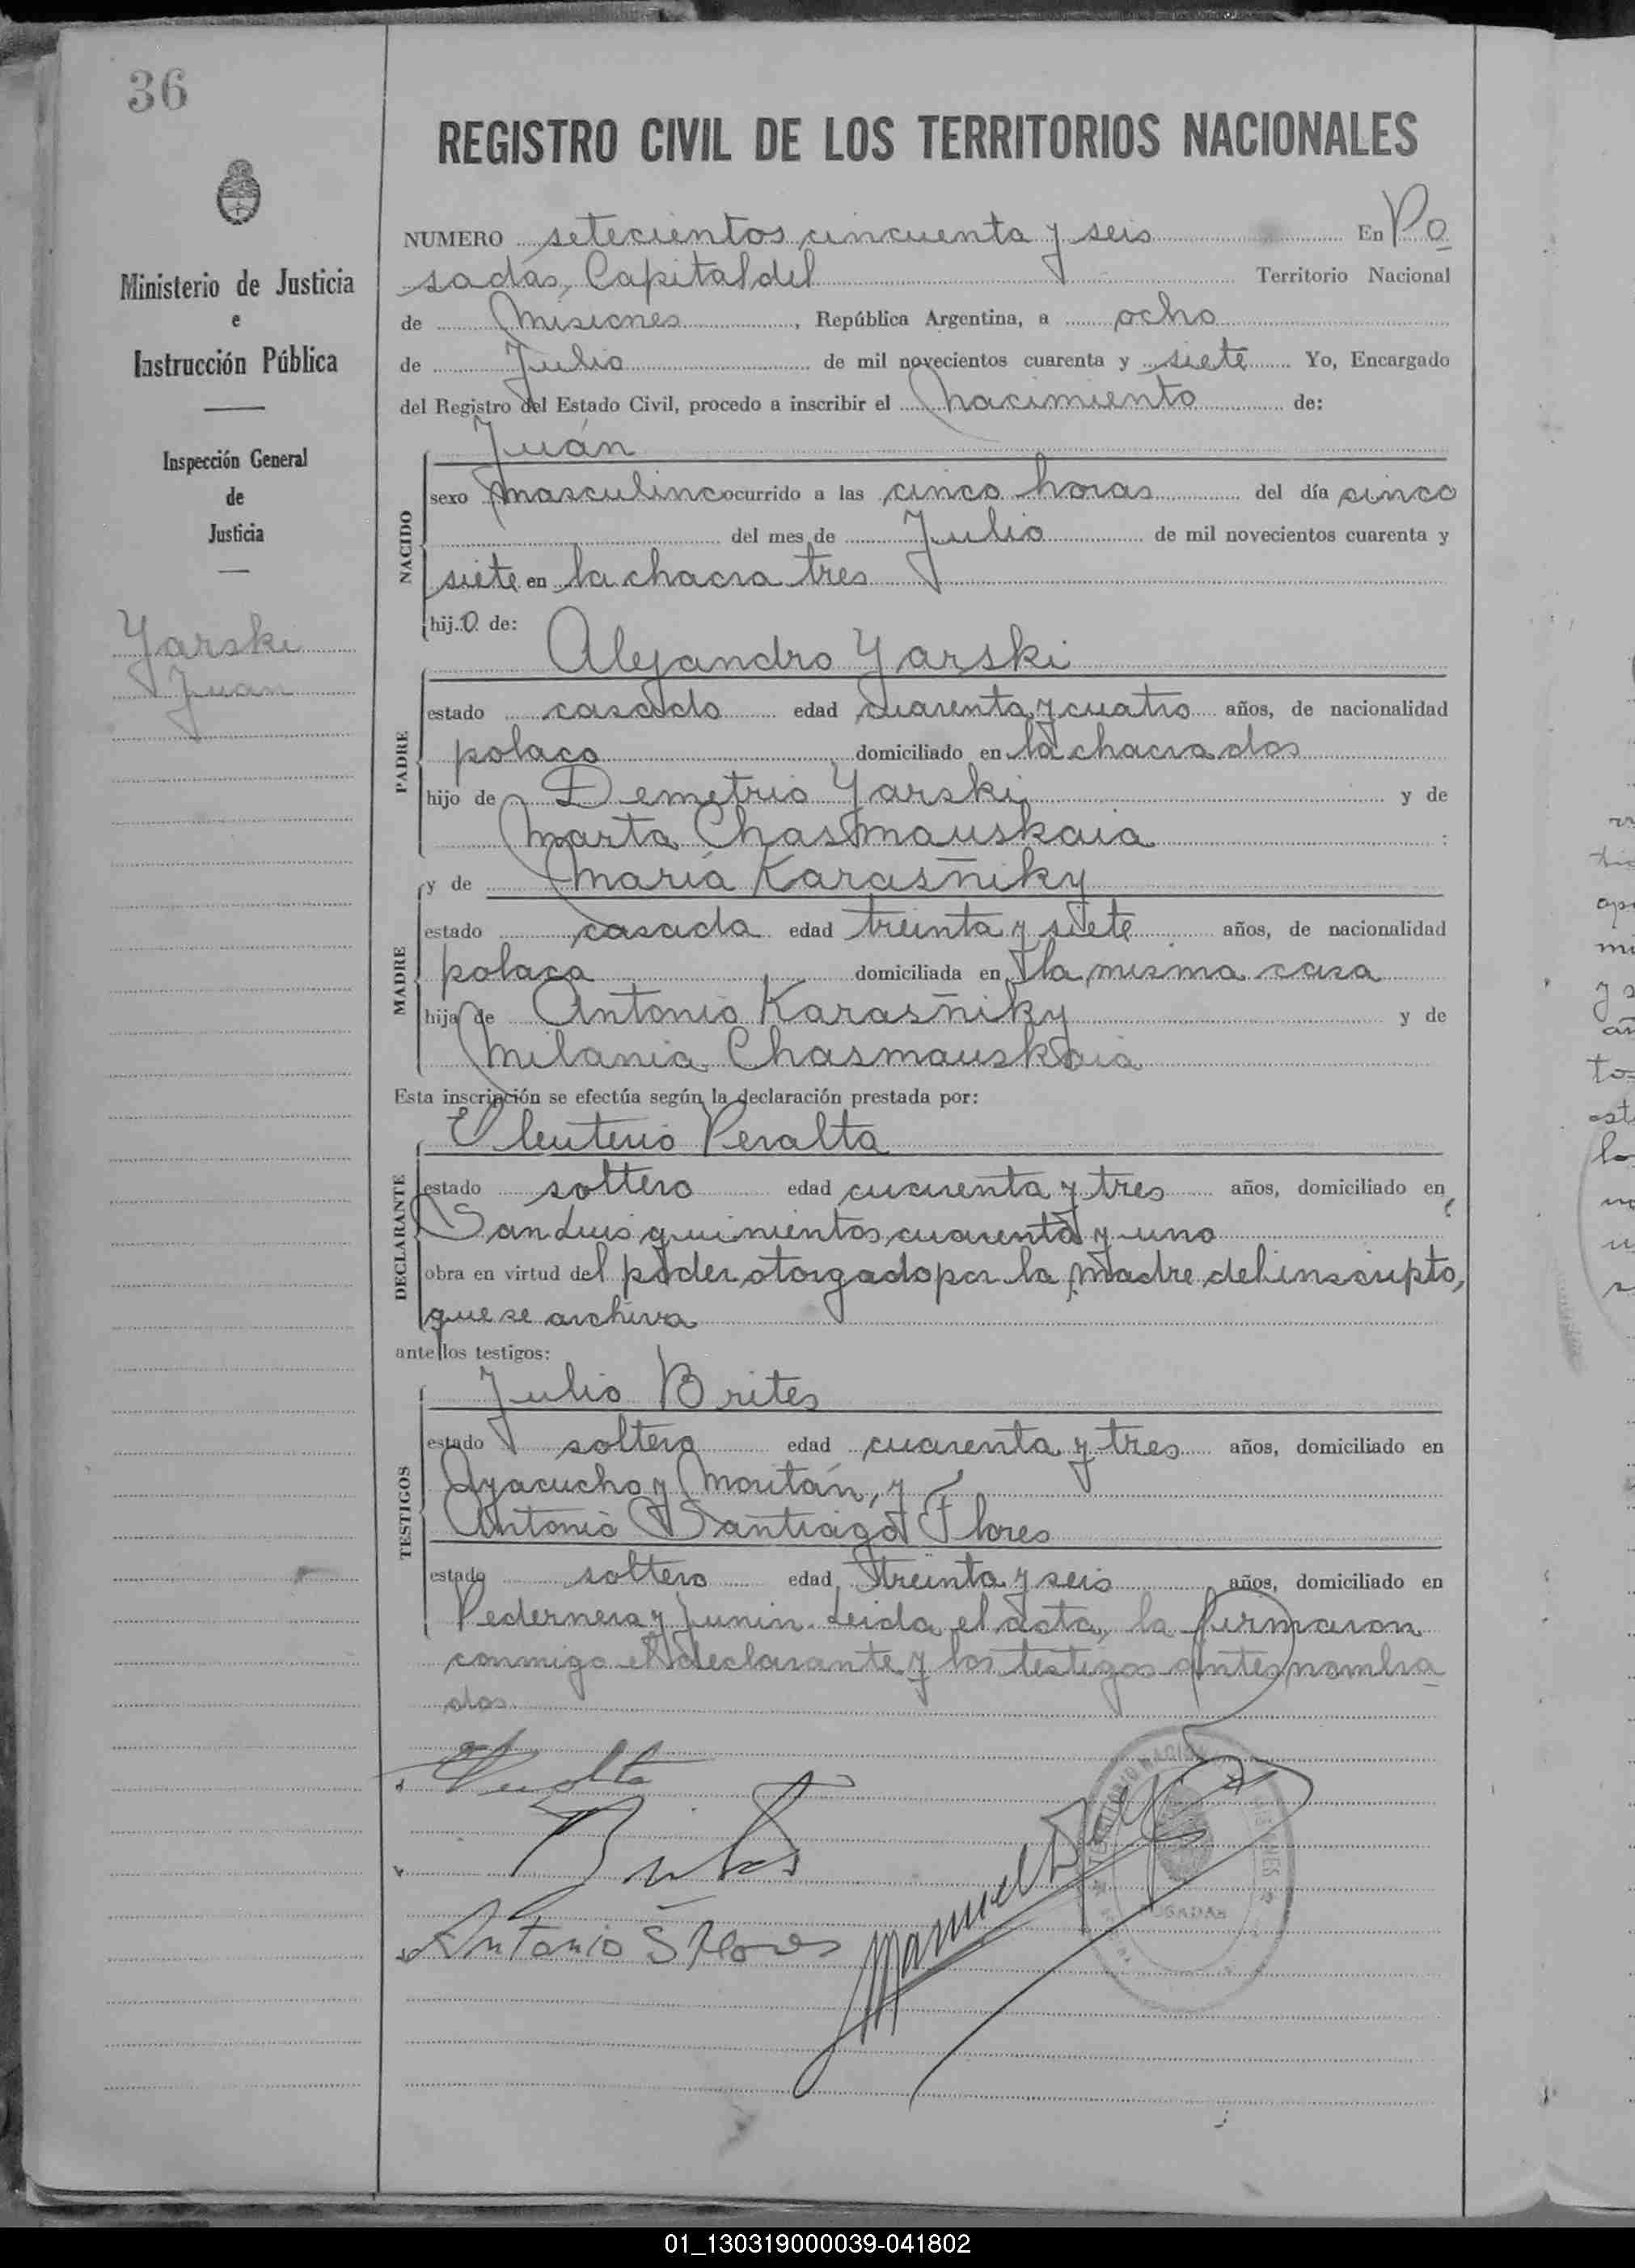 36
Ministerio de Justicia
e
Instrucción Pública
Inspección General
de
Justicia
Yarski
Juan
REGISTRO CIVIL DE LOS TERRITORIOS NACIONALES
NUMERO setecientos cincuenta y seis En Po
sadas, Capital del Territorio Nacional
de Misiones, República Argentina, a ocho
de Julio de mil novecientos cuarenta y siete Yo, Encargado
del Registro del Estado Civil, procedo a inscribir el nacimiento de:
NACIDO
Juán
sexo masculino ocurrido a las cinco horas del día cinco
del mes de Julio de mil novecientos cuarenta y
siete en la chacra tres
hijo de:
PADRE
Alejandro Yarski
estado casado edad cuarenta y cuatro años, de nacionalidad
polaca domiciliado en la chacra dos
hijo de Demetrio Yarski y de
Marta Chasmauskaia
MADRE
y de María Karasñiky
estado casada edad treinta y siete años, de nacionalidad
polaca domiciliada en la misma casa
hija de Antonio Karasñiky y de
Milania Chasmauskaia
Esta inscripción se efectúa según la declaración prestada por:
DECLARANTE
Eleuterio Peralta
estado soltero edad cuarenta y tres años, domiciliado en
San Luis quinientos cuarenta y uno
obra en virtud del poder otorgado por la madre del inscripto,
que se archiva
ante los testigos:
TESTIGOS
Julio Brites
estado soltero edad cuarenta y tres años, domiciliado en
Ayacucho y Moritán, y
Antonio Santiago Flores
estado soltero edad treinta y seis años, domiciliado en
Pedernera y Junin. Leida el acta, la firmaron
conmigo el declarante y los testigos antes nombra
dos.
Peralta
Brites
Antonio S Flores
Manuel
POSADAS
MISIONES
01_130319000039-041802